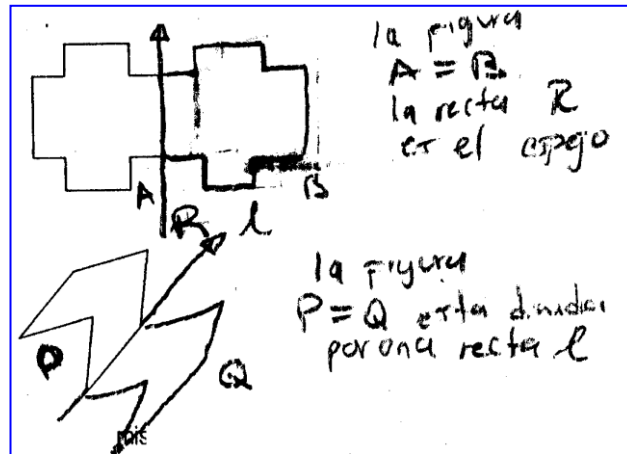 la figura
A = B
la recta R
es el espejo
A
B
R
l
la figura
P = Q esta dividida
por una recta l
P
Q
mis